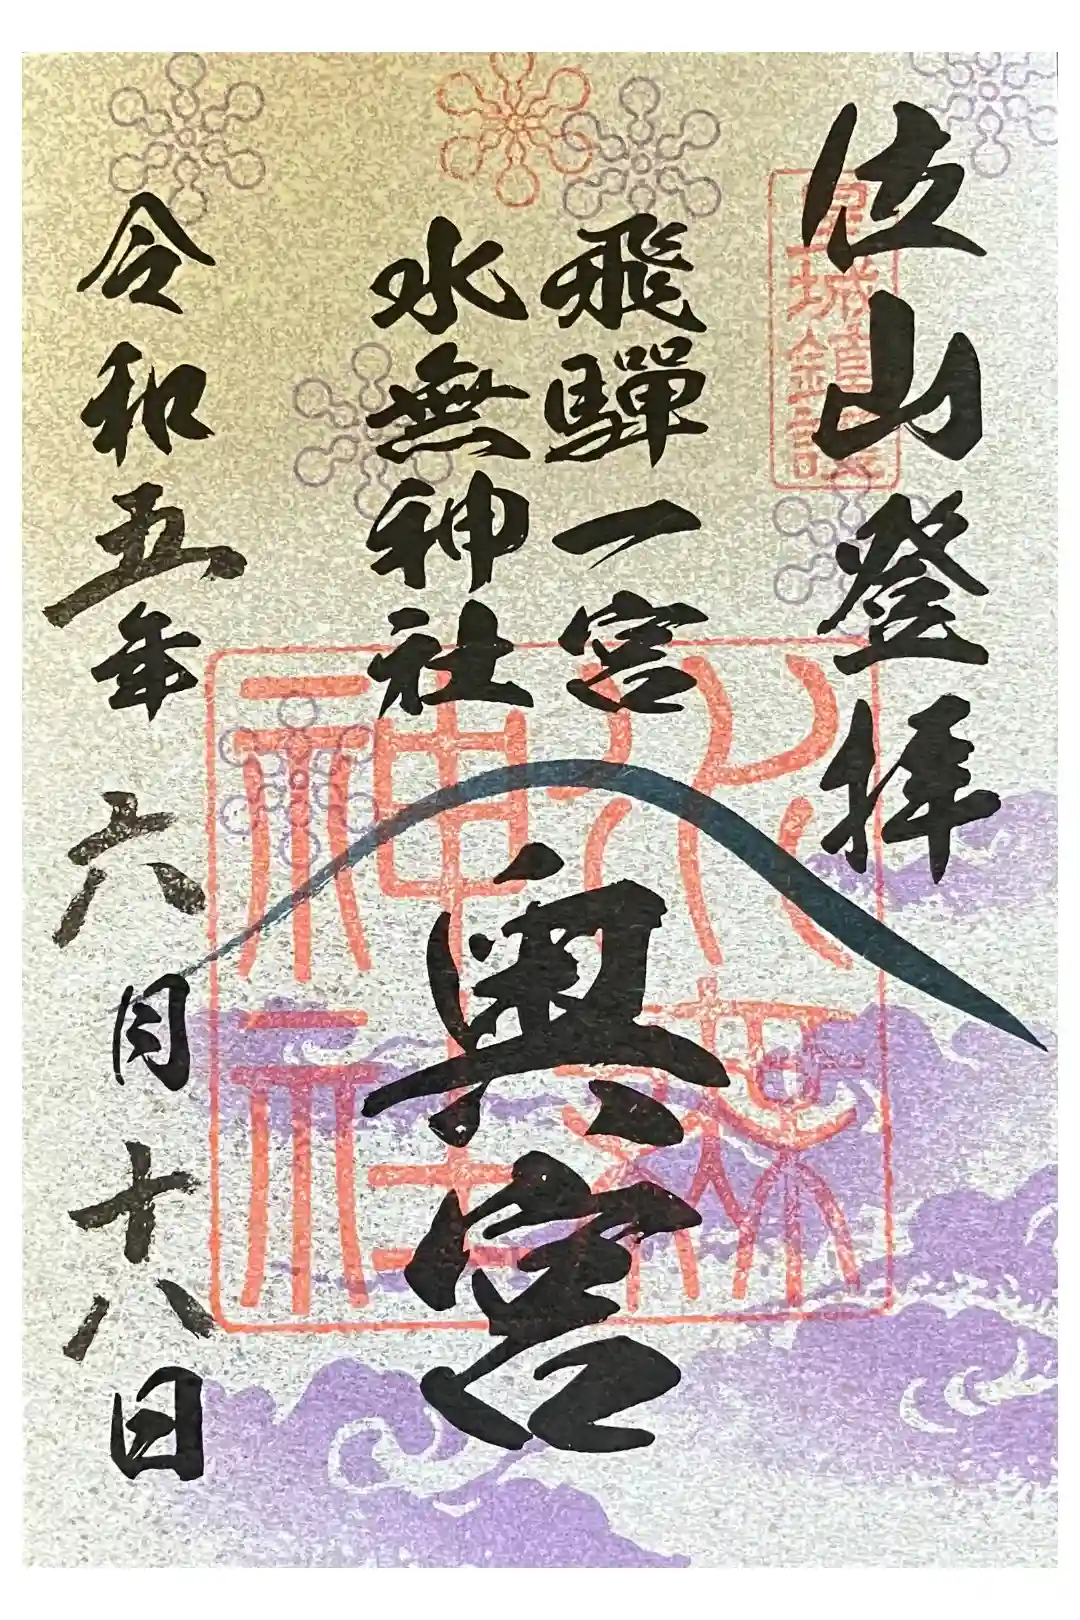 位山登拝
皇城鎮護
飛驒一宮
水無神社
奥宮
水無神社
令和五年六月十八日